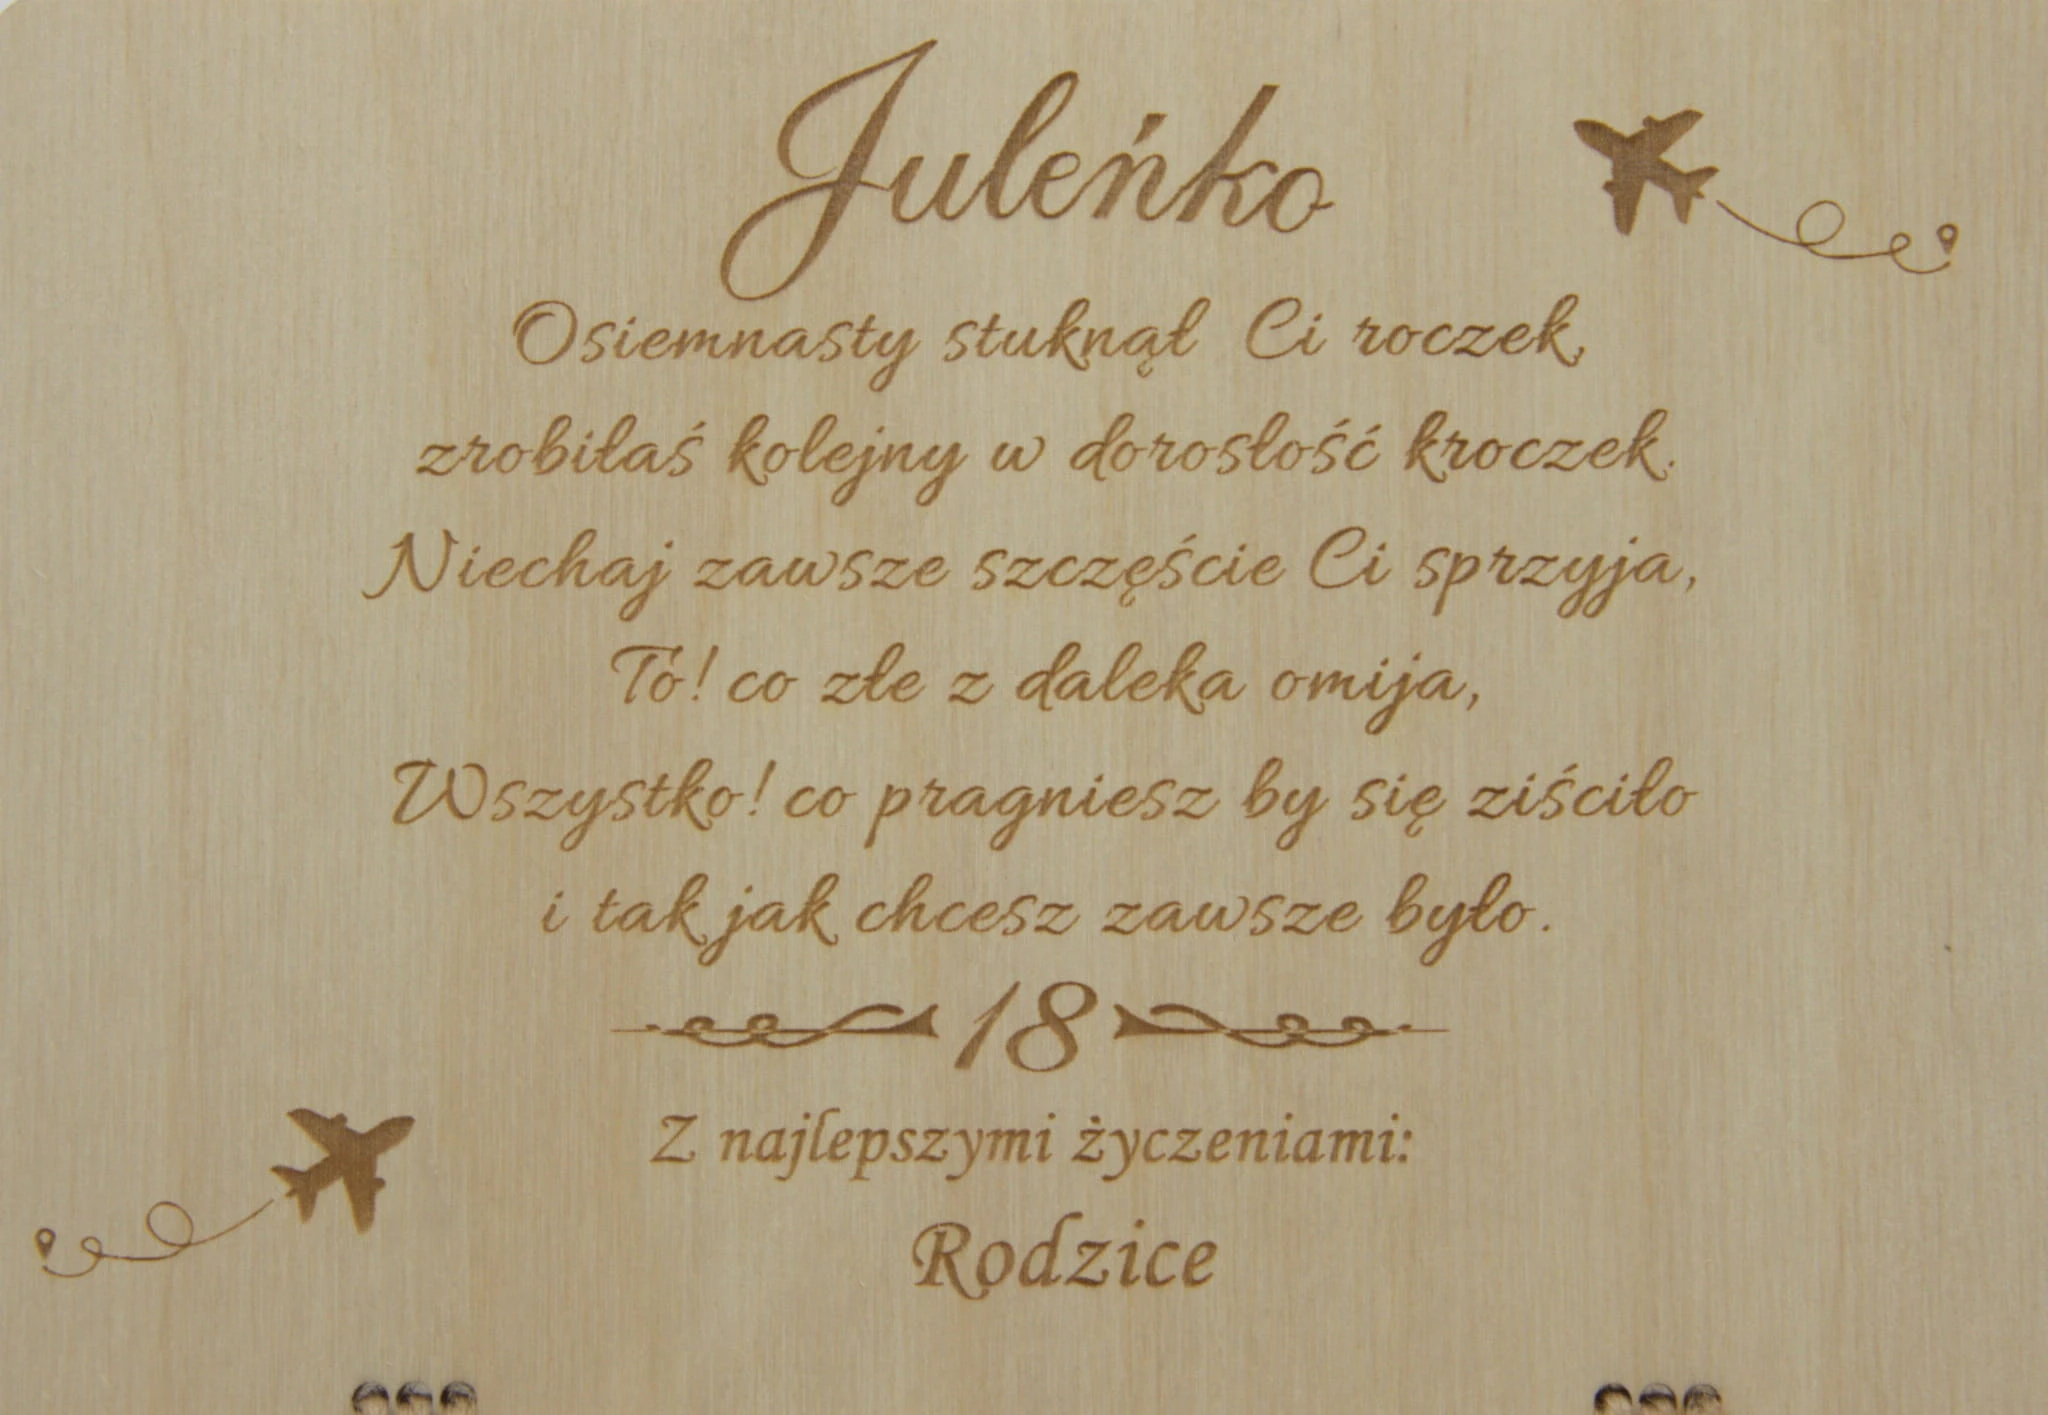 Juleńko
Osiemnasty stuknął Ci roczek,
zrobiłaś kolejny w dorosłość kroczek.
Niechaj zawsze szczęście Ci sprzyja,
To! co złe z daleka omija,
Wszystko! co pragniesz by się ziściło
i tak jak chcesz zawsze było.
18
Z najlepszymi życzeniami:
Rodzice